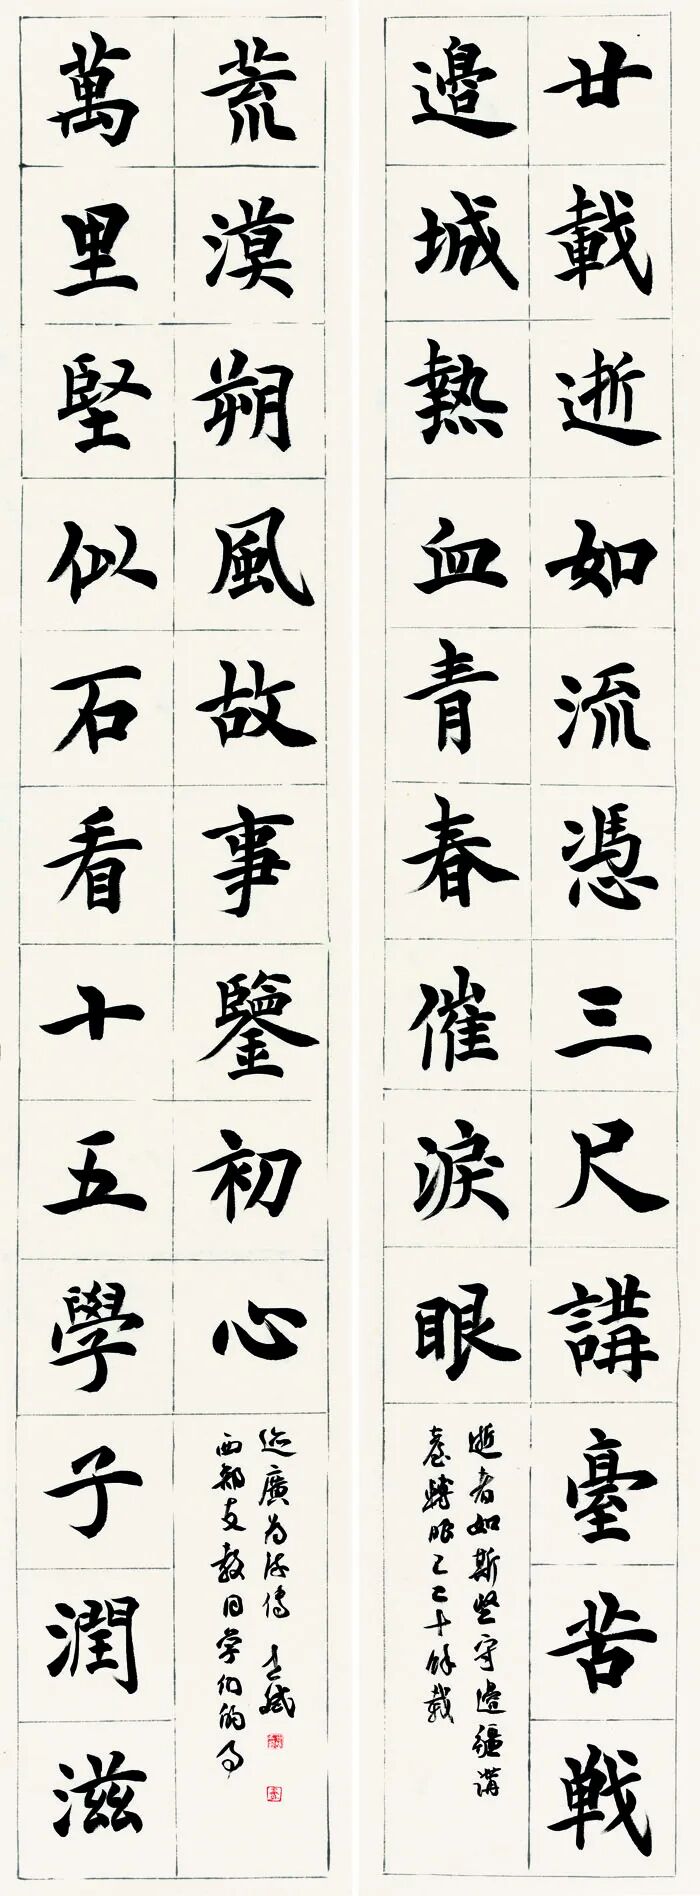 廿載逝如流憑三尺講臺苦戦
邊城熱血青春催淚眼
逝者如斯堅守邊疆講
臺轉眼已二十餘載
萬里堅似石看十五學子潤滋
荒漠朔風故事鑒初心
西部支教同学们的事
迹廣为流傳